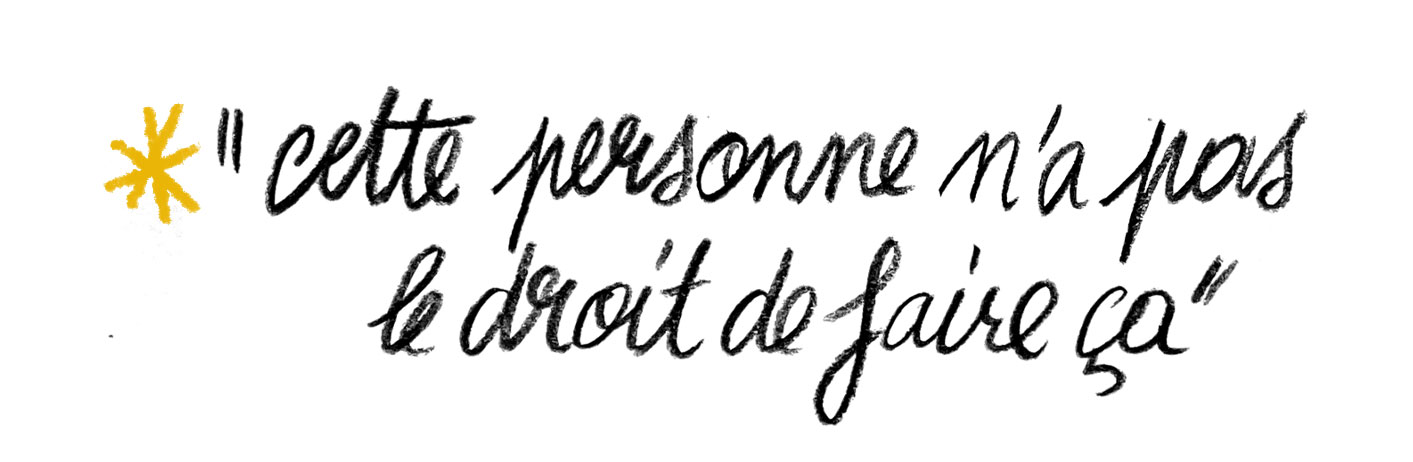 "cette personne n'a pas
le droit de faire ça"